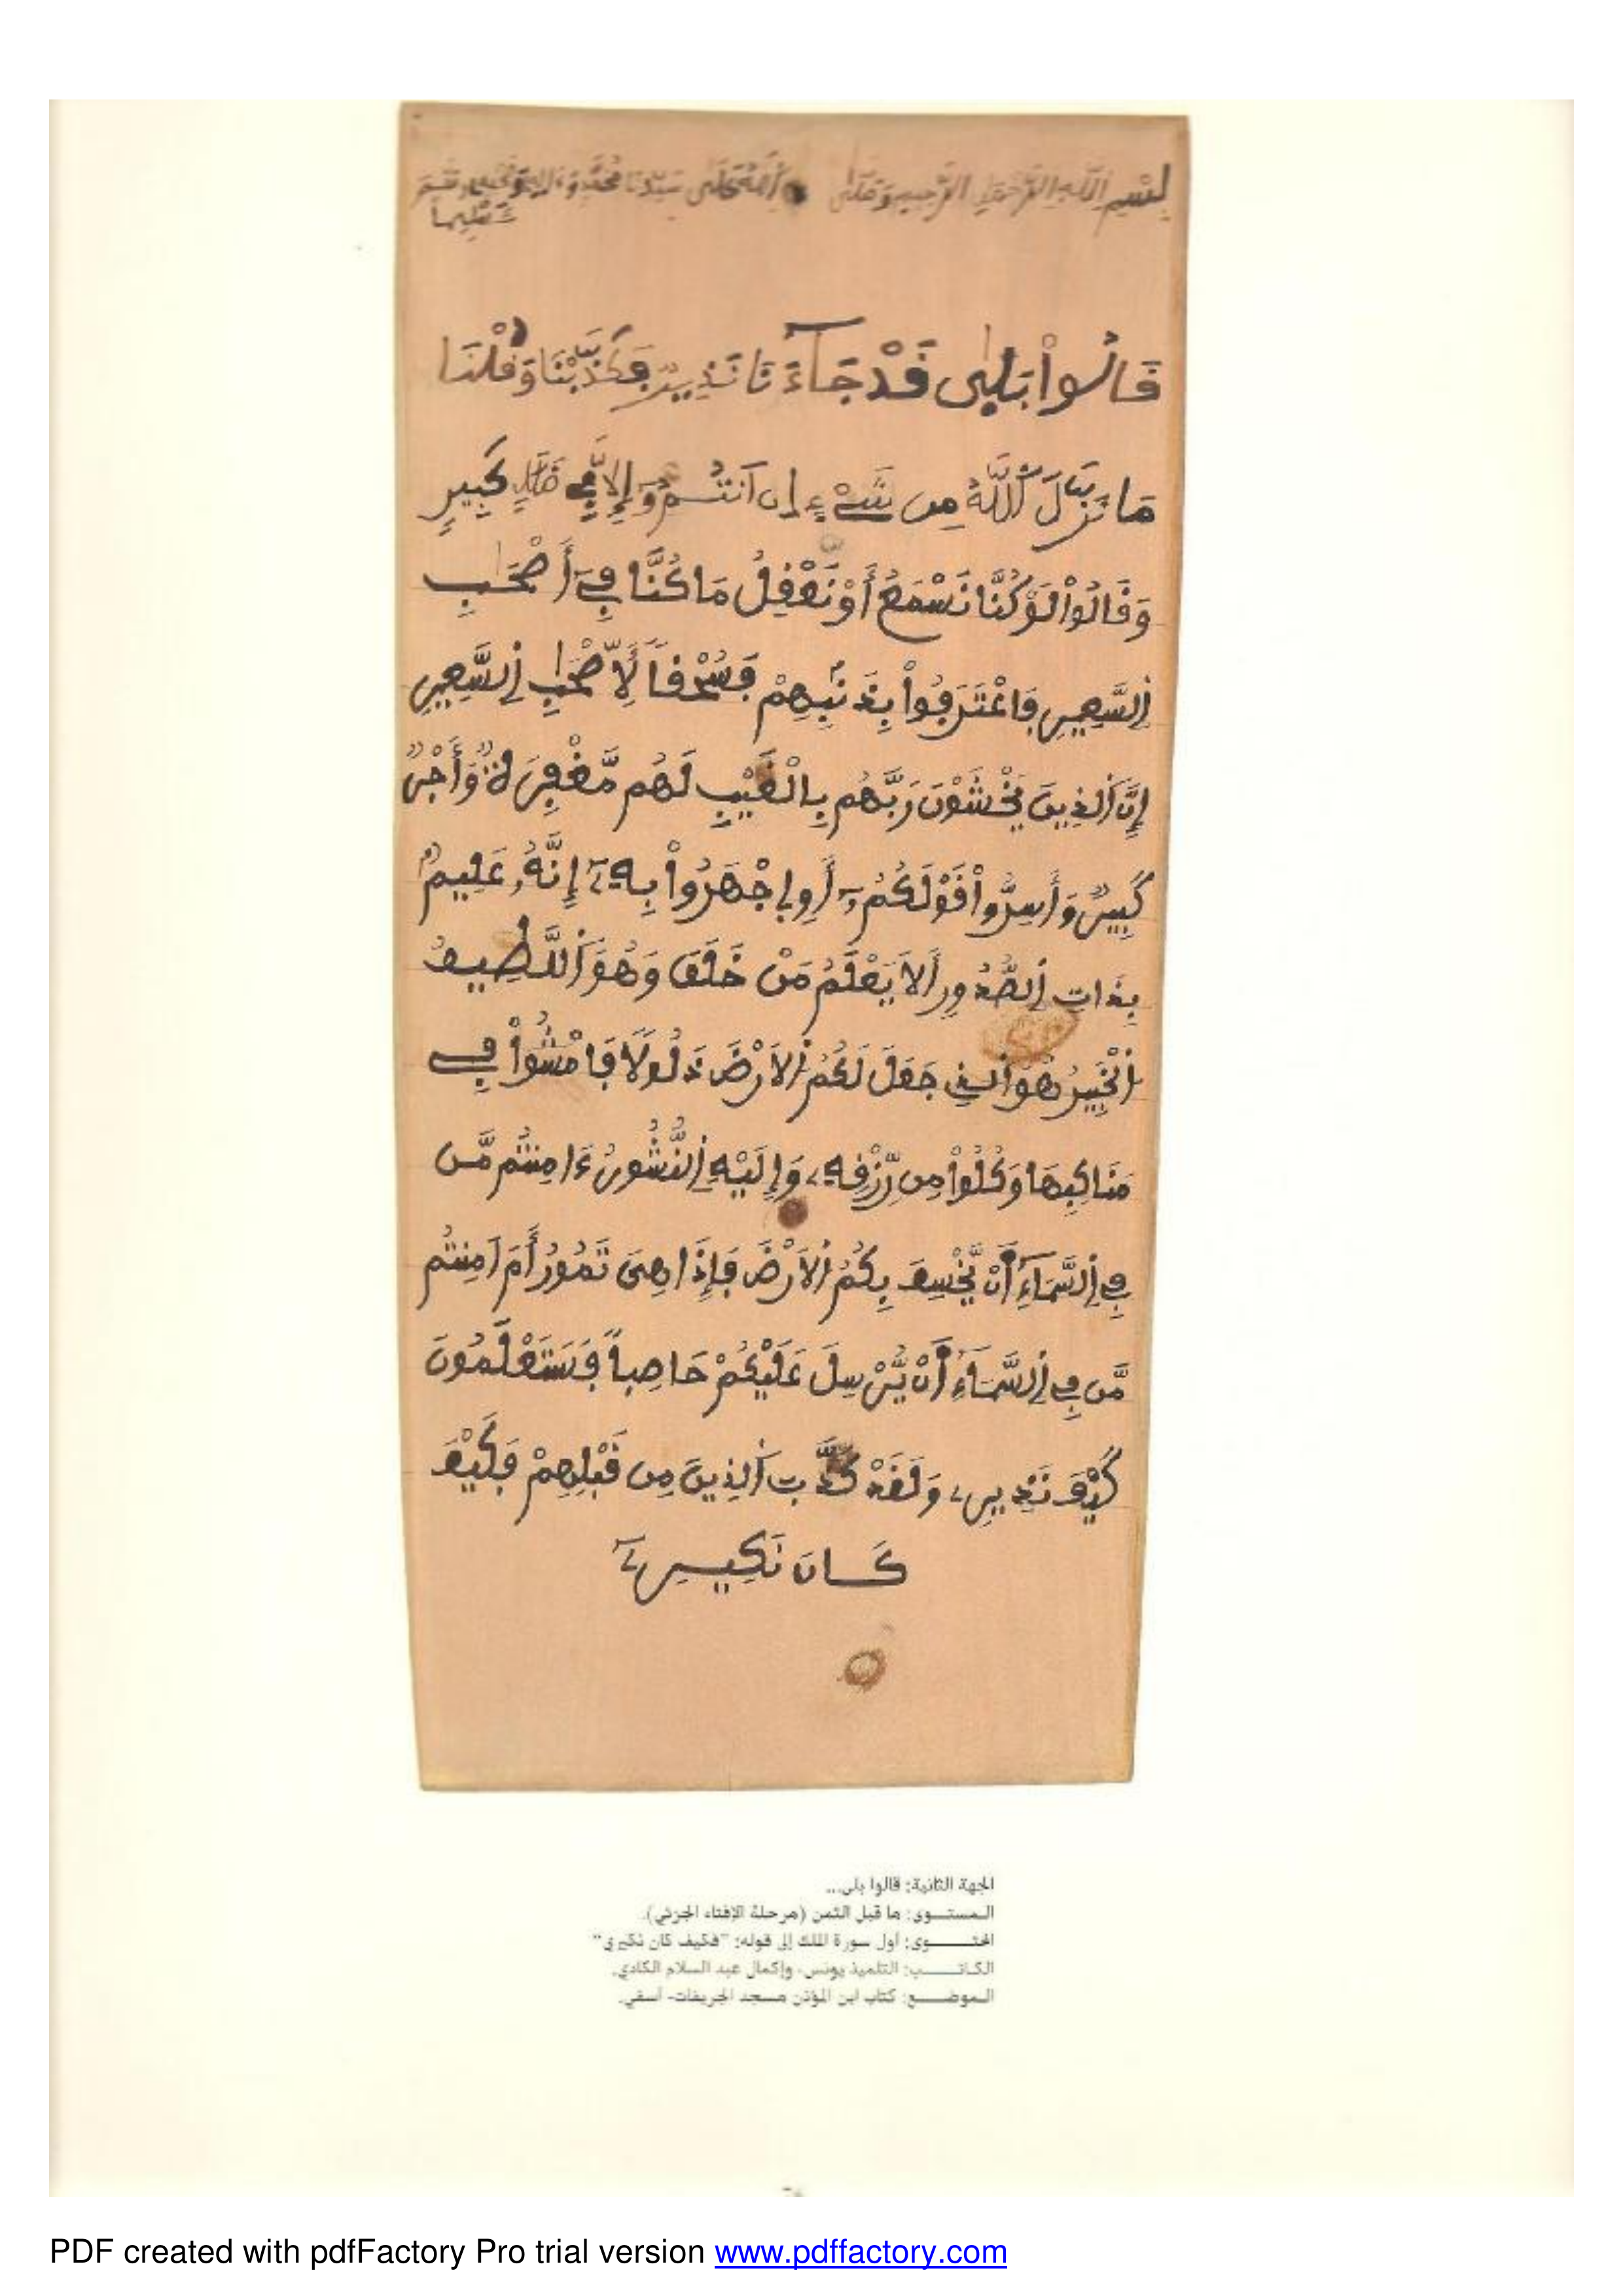 بِسْمِ اللَّهِ الرَّحْمَٰنِ الرَّحِيمِ وَصَلَّى اللَّهُ عَلَى سَيِّدِنَا مُحَمَّدٍ وَءَالِهِ وَصَحْبِهِ وَسَلَّمَ
تَسْلِيماً
قَالُواْ بَلَىٰ قَدْ جَآءَنَا نَذِيرٌ فَكَذَّبْنَا وَقُلْنَا
مَا نَزَّلَ اَ۬للَّهُ مِن شَےْءٍ اِنَ اَنتُمُۥٓ إِلَّا فِے ضَلَٰلٖ كَبِيرٖ
وَقَالُواْ لَوْ كُنَّا نَسْمَعُ أَوْ نَعْقِلُ مَا كُنَّا فِےٓ أَصْحَٰبِ
اِ۬لسَّعِيرِ فَاعْتَرَفُواْ بِذَنۢبِهِمْ فَسُحْقاٗ لِّأَصْحَٰبِ اِ۬لسَّعِيرِ
إِنَّ اَ۬لذِينَ يَخْشَوْنَ رَبَّهُم بِالْغَيْبِ لَهُم مَّغْفِرَةٞ وَأَجْرٞ
كَبِيرٞ وَأَسِرُّواْ قَوْلَكُمُۥٓ أَوِ اِ۪جْهَرُواْ بِهِۦٓ إِنَّهُۥ عَلِيمُۢ
بِذَاتِ اِ۬لصُّدُورِ أَلَا يَعْلَمُ مَنْ خَلَقَ وَهُوَ اَ۬للَّطِيفُ
اُ۬لْخَبِيرُ هُوَ اَ۬لذِے جَعَلَ لَكُمُ اُ۬لَارْضَ ذَلُولاٗ فَامْشُواْ فِے
مَنَاكِبِهَا وَكُلُواْ مِن رِّزْقِهِۦ وَإِلَيْهِ اِ۬لنُّشُورُ ءَامِنتُم مَّن
فِے اِ۬لسَّمَآءِ اَ۬نْ يَّخْسِفَ بِكُمُ اُ۬لَارْضَ فَإِذَا هِيَ تَمُورُ أَمَ اَمِنتُم
مَّن فِے اِ۬لسَّمَآءِ اَ۬نْ يُّرْسِلَ عَلَيْكُمْ حَاصِباٗ فَسَتَعْلَمُونَ
كَيْفَ نَذِيرِۦ وَلَقَدْ كَذَّبَ اَ۬لذِينَ مِن قَبْلِهِمْ فَكَيْفَ
كَانَ نَكِيرِۦٓ
الجهة الثانية: قالوا بلى...
المستوى: ما قبل الثمن (مرحلة الإفتاء الجزئي).
المحتوى: أول سورة الملك إلى قوله: "فكيف كان نكيري"
الكاتب: التلميذ يونس، وإكمال عبد السلام الكادي.
الموضع: كتاب ابن المؤذن مسجد الجريفات- آسفي.
PDF created with pdfFactory Pro trial version www.pdffactory.com